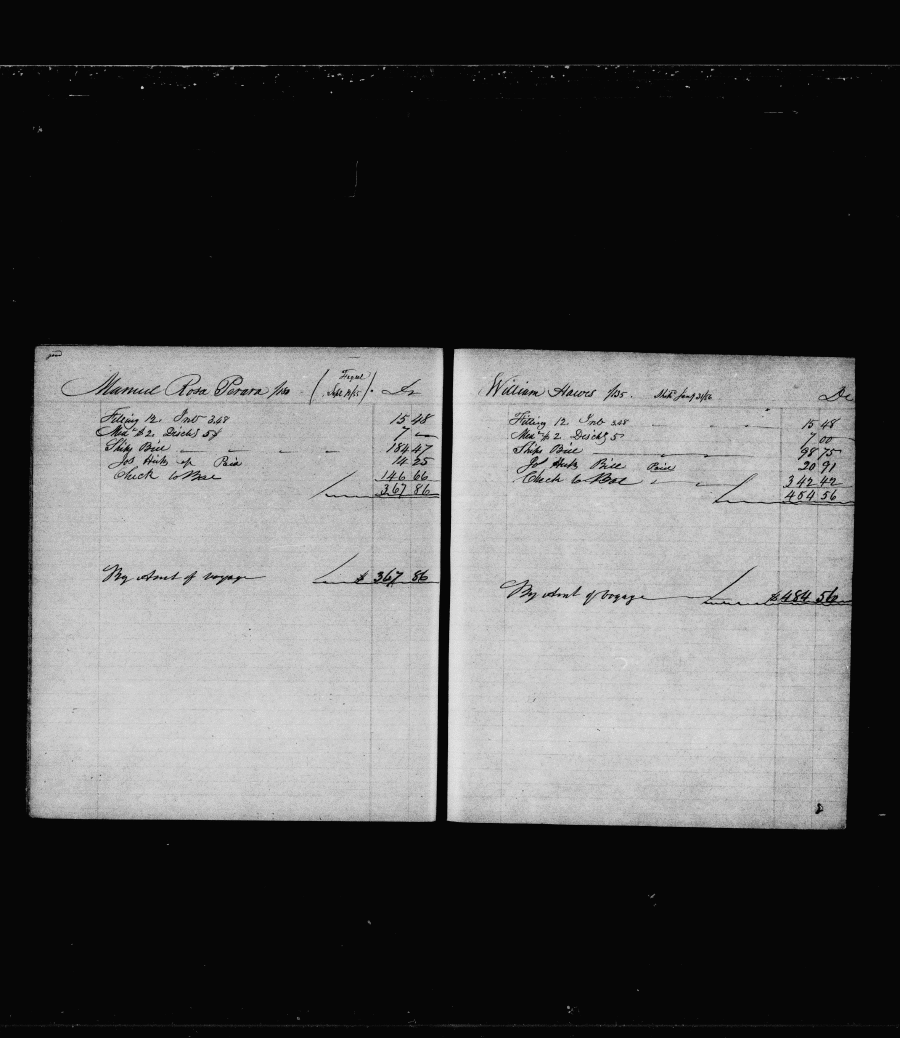 Manuel Rosa Perara ( Fayal Sept 19/15 ) Dr
Fitting 12. Int 3.48 15 48
Med $2. Disch'g 5 7 —
Ships Bill 184 47
Jos Hicks Paid 14 25
Check to Bal 146 66
367 86
By Amt of voyage $ 367 86
William Hawes 1/35. Dr
Fitting 12 Int 3.48 15 48
Med $2 Disch'g 5 7 00
Ships Bill 98 75
Jos Hicks Bill Paid 20 91
Check to Bal 342 42
484 56
By Amt of voyage $ 484 56